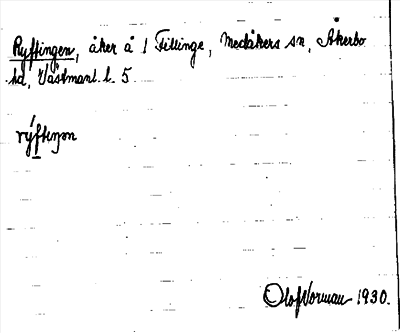 Ryftingen, åker å 1 Fillinge, Medåkers sn, Åkerbo
hd, Västmanl. l. 5.
rýftiŋɑn
Olof Norman 1930.